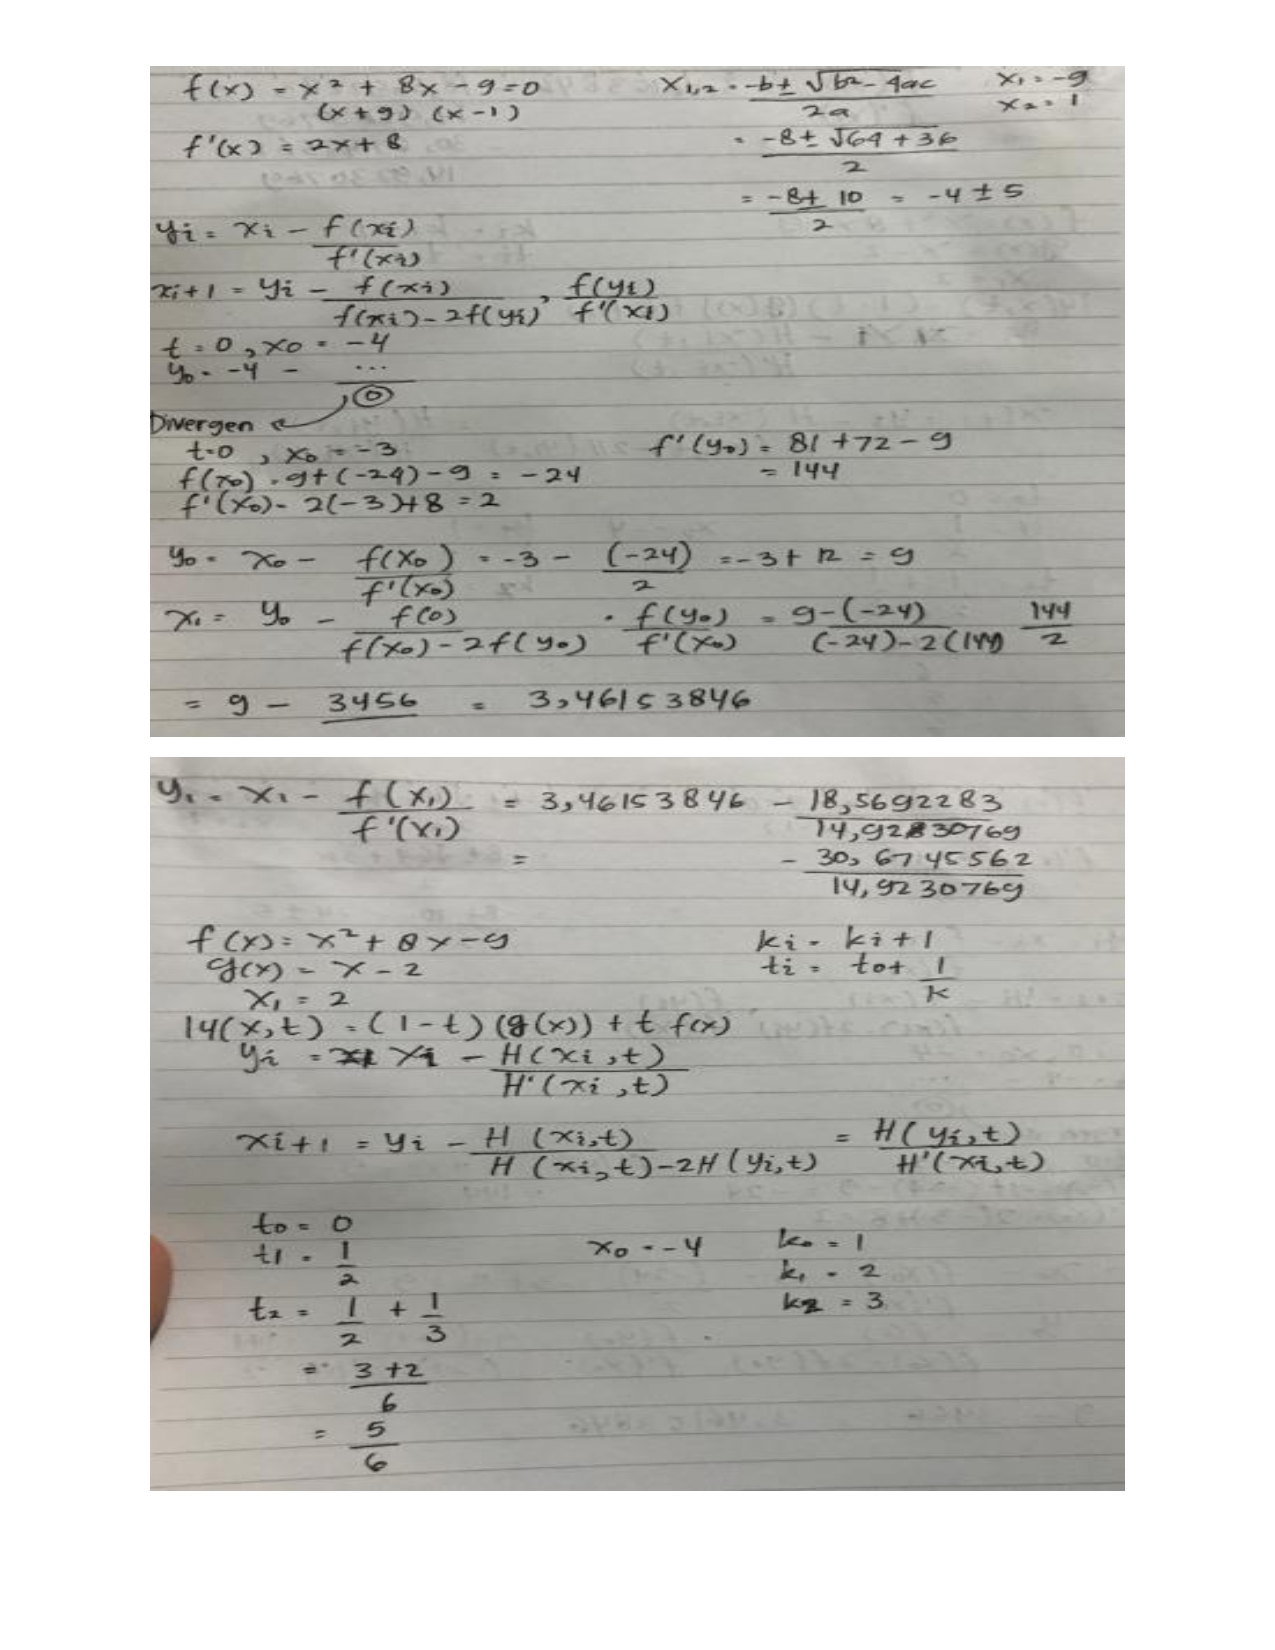 f(x) = x² + 8x - 9 = 0
(x+9) (x-1)
f'(x) = 2x + 8
x1,2 = -b ± √b² - 4ac / 2a
x1 = -9
x2 = 1
= -8 ± √64 + 36 / 2
= -8 ± 10 / 2 = -4 ± 5
yi = xi - f(xi) / f'(xi)
xi+1 = yi - f(xi) / f(xi) - 2f(yi) , f(yi) / f'(xi)
t = 0, x0 = -4
y0 = -4 - ... / 0
Divergen
t=0 , x0 = -3
f(x0) = 9+(-24)-9 = -24
f'(x0) = 2(-3)+8 = 2
f'(y0) = 81 + 72 - 9
= 144
y0 = x0 - f(x0) / f'(x0) = -3 - (-24) / 2 = -3 + 12 = 9
x1 = y0 - f(0) / f(x0) - 2f(y0) . f(y0) / f'(x0) = 9 - (-24) / (-24) - 2(144) 144 / 2
= 9 - 3456 = 3,46153846
y1 = x1 - f(x1) / f'(x1) = 3,46153846 - 18,5692283 / 14,92830769
= - 30,6745562 / 14,9230769
f(x) = x² + 8x - 9
g(x) = x - 2
x1 = 2
ki = ki + 1
ti = t0 + 1 / k
14(x,t) = (1-t) (g(x)) + t f(x)
yi = xi - H(xi,t) / H'(xi,t)
xi+1 = yi - H (xi,t) / H (xi,t) - 2H (yi,t) = H(yi,t) / H'(xi,t)
t0 = 0
t1 = 1 / 2
x0 = -4
k0 = 1
k1 = 2
k2 = 3
t2 = 1 / 2 + 1 / 3
= 3+2 / 6
= 5 / 6